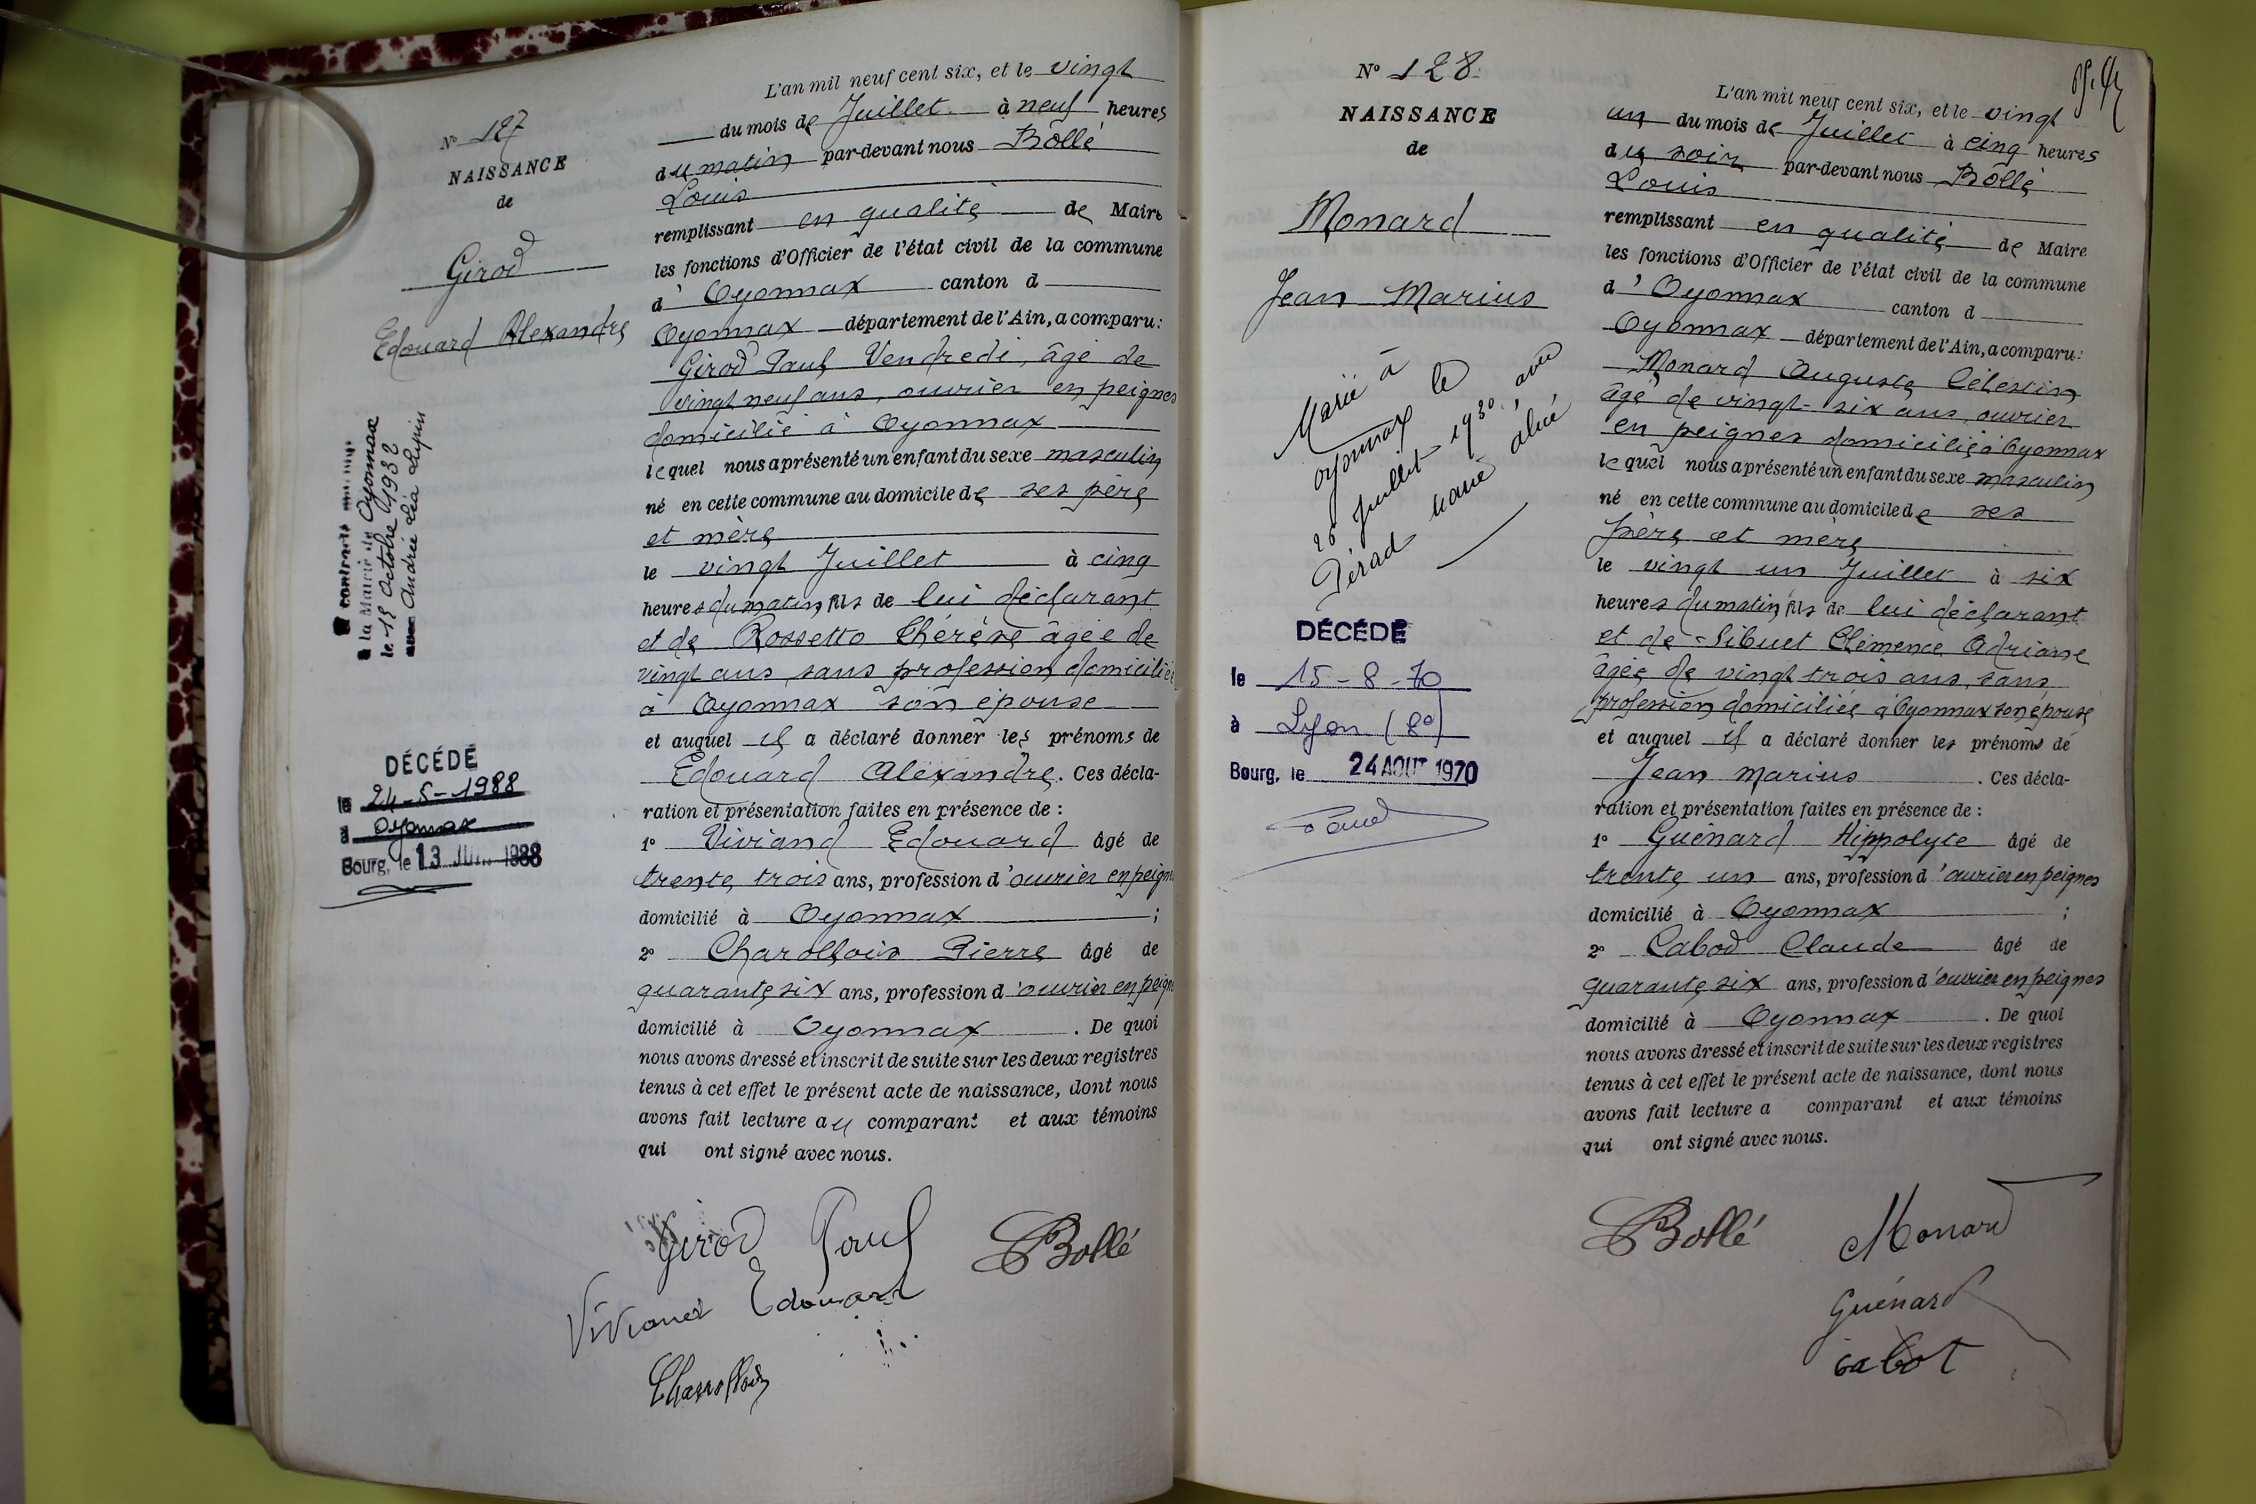 N° 127
NAISSANCE
de
Girod
Edouard Alexandre
a contracté mariage
à la Mairie de Oyonnax
le 15 Octobre 1932
avec Andrée Léa
DÉCÉDÉ
le 24-5-1988
à Oyonnax
Bourg, le 13 JUIN 1988
L'an mil neuf cent six, et le vingt
du mois de Juillet à neuf heures
du matin par-devant nous Bollé
Louis
remplissant en qualité de Maire
les fonctions d'Officier de l'état civil de la commune
d' Oyonnax canton d
Oyonnax département de l'Ain, a comparu:
Girod Paul Vendredi, âgé de
vingt neuf ans, ouvrier en peignes
domicilié à Oyonnax
lequel nous a présenté un enfant du sexe masculin
né en cette commune au domicile de ses père
et mère
le vingt Juillet à cinq
heures du matin, fils de lui déclarant
et de Rossetto Thérèse âgée de
vingt ans, sans profession, domiciliée
à Oyonnax son épouse
et auquel il a déclaré donner les prénoms de
Edouard Alexandre. Ces décla-
ration et présentation faites en présence de :
1° Viviand Edouard âgé de
trente trois ans, profession d'ouvrier en peign
domicilié à Oyonnax ;
2° Charollois Pierre âgé de
quarante six ans, profession d'ouvrier en peign
domicilié à Oyonnax . De quoi
nous avons dressé et inscrit de suite sur les deux registres
tenus à cet effet le présent acte de naissance, dont nous
avons fait lecture au comparant et aux témoins
qui ont signé avec nous.
Girod Paul Bollé
Viviand Edouard
Charollois
N° 128
NAISSANCE
de
Monard
Jean Marius
Marié à
Oyonnax le
26 Juillet 1930, avec
Pérad Marie Alice
DÉCÉDÉ
le 15-8-70
à Lyon (8e)
Bourg, le 24 AOUT 1970
L'an mil neuf cent six, et le vingt
un du mois de Juillet à cinq heures
du soir par-devant nous Bollé
Louis
remplissant en qualité de Maire
les fonctions d'Officier de l'état civil de la commune
d' Oyonnax canton d
Oyonnax département de l'Ain, a comparu:
Monard Auguste Célestin
âgé de vingt-six ans, ouvrier
en peignes domicilié à Oyonnax
lequel nous a présenté un enfant du sexe masculin
né en cette commune au domicile de ses
père et mère
le vingt un Juillet à six
heures du matin, fils de lui déclarant
et de Sibuet Clémence Adriane
âgée de vingt trois ans, sans
profession domiciliée à Oyonnax son épouse
et auquel il a déclaré donner les prénoms de
Jean Marius . Ces décla-
ration et présentation faites en présence de :
1° Guénard Hippolyte âgé de
trente un ans, profession d'ouvrier en peignes
domicilié à Oyonnax ;
2° Cabod Claude âgé de
quarante six ans, profession d'ouvrier en peignes
domicilié à Oyonnax . De quoi
nous avons dressé et inscrit de suite sur les deux registres
tenus à cet effet le présent acte de naissance, dont nous
avons fait lecture a comparant et aux témoins
qui ont signé avec nous.
Bollé Monard
Guénard
Cabot